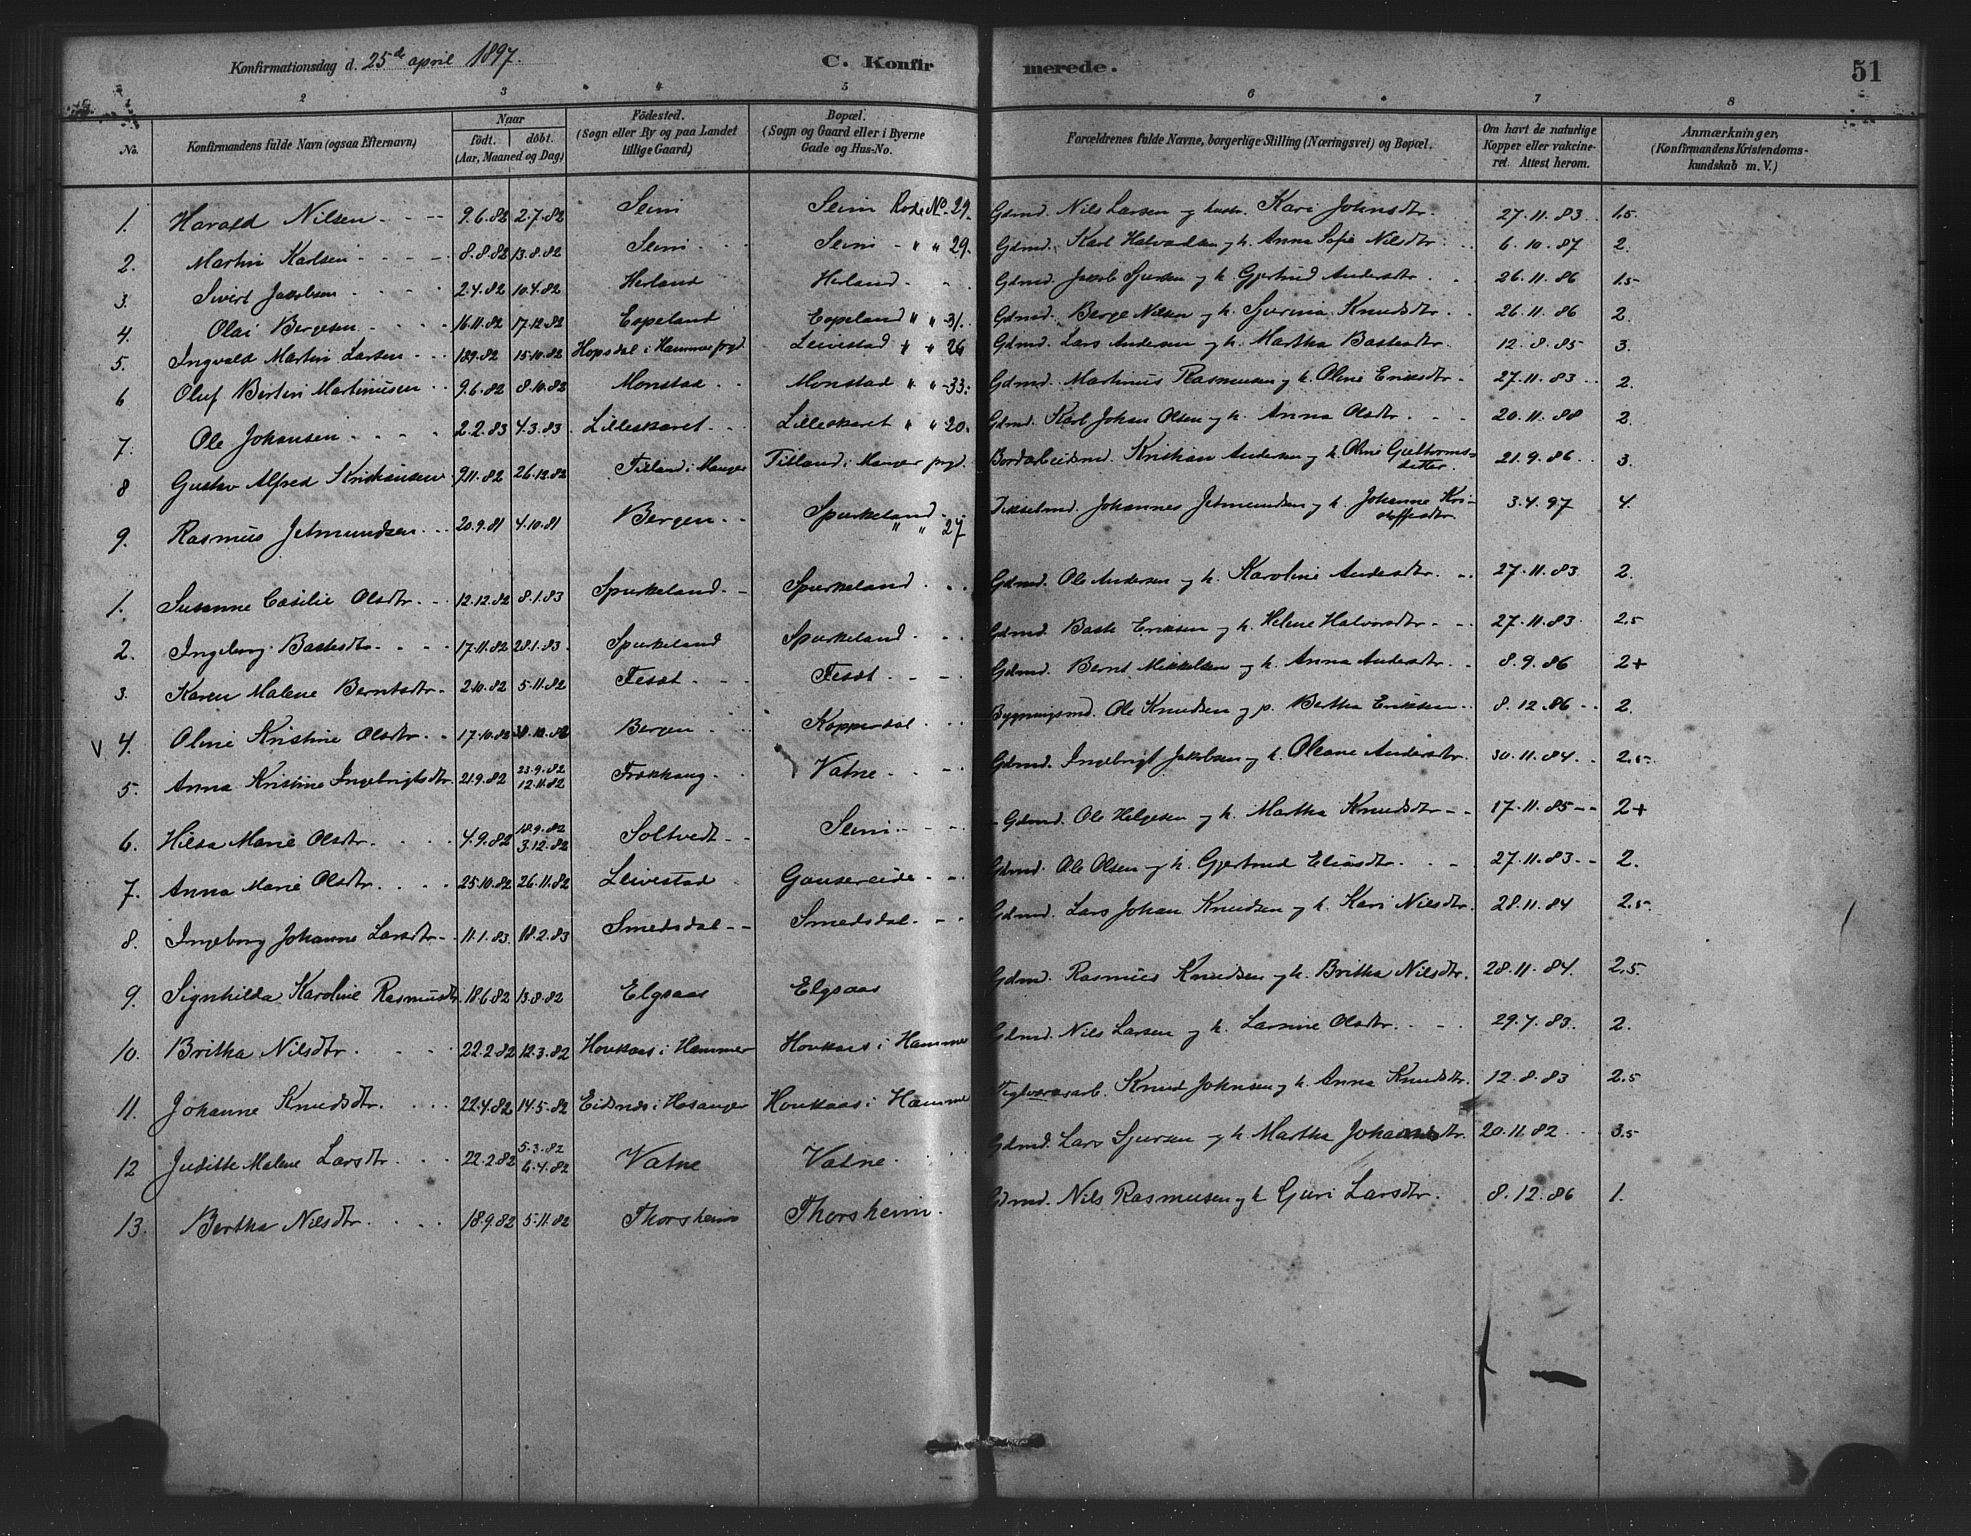 Konfirmationsdag d. 25de april 1897.
C. Konfirmerede.
51
1 2 3 4 5 6 7 8
No.
Konfirmandens fulde Navn (ogsaa Efternavn)
Naar
født. døbt.
(Aar, Maaned og Dag)
Födested.
(Sogn eller By og paa Landet
tillige Gaard)
Bopæl.
(Sogn og Gaard eller i Byerne
Gade og Hus-No.
Forældrenes fulde Navne, borgerlige Stilling (Næringsvei) og Bopæl.
Om havt de naturlige
Kopper eller vakcine-
ret. Attest herom.
Anmærkninger,
(Konfirmandens Kristendoms-
kundskab m. V.)
1. Harald Nilsen 9.6.82 2.7.82 Seim Seim Rode No 29. Gdmd. Nils Larsen og hustr. Kari Johnsdtr. 27.11.83 1.5
2. Martin Karlsen 8.8.82 13.8.82 Seim Seim " " 29. Gdmd. Karl Halvardsen og h. Anna Sofie Nilsdtr. 6.10.87 2.
3. Sivert Jakobsen 2.4.82 10.4.82 Herland Herland Gdmd. Jakob Sjursen og h. Gjertrud Andersdtr. 26.11.86 1.5
4. Olai Bergesen 16.11.82 17.12.82 Espeland Espeland " " 31. Gdmd. Berge Nilsen og h. Sjurina Knudsdtr. 26.11.86 2.
5. Ingvald Martin Larsen 18.9.82 15.10.82 Hopsdal i Hammer prgd. Leivestad " " 26 Gdmd. Lars Andersen og h. Martha Bastesdtr. 12.8.85 3.
6 Oluf Bertin Martinusen 9.6.82 8.10.82 Monstad Monstad " " 33. Gdmd. Martinus Rasmusen og h. Oline Eriksdtr. 27.11.83 2.
7. Ole Johansen 2.2.83 4.3.83 Lilleskaret Lilleskaret " " 20. Gdmd. Karl Johan Olsen og h. Anna Olsdtr. 20.11.88 2.
8 Gustav Alfred Kristiansen 9.11.82 26.12.82 Titland i Manger Titland i Manger prgd. Bordarbeidsmd. Kristian Andersen og h. Oline Guttorms-
datter. 21.9.86 3.
9. Rasmus Jetmundsen 20.9.81 4.10.81 Bergen Spurkeland
" " 27 Johannes Jetmundsen og h. Johanne Kri-
stoffersdtr. 3.4.97 4.
1. Susanne Cesilie Olsdtr. 12.12.82 8.1.83 Spurkeland Spurkeland Gdmd. Ole Andersen og h. Karoline Andersdtr. 27.11.83 2.
2. Ingeborg Bastesdtr. 17.11.82 28.1.83 Spurkeland Spurkeland Gdmd. Baste Eriksen og h. Helene Halvorsdtr. 27.11.83 2.5
3. Karen Malene Berntsdtr. 2.10.82 5.11.82 Fesøt Fesøt Gdmd. Bernt Mikkelsen og h. Anna Andersdtr. 8.9.86 2+
V 4. Oline Kristine Olsdtr. 17.10.82 Bergen Kopperdal Bygningsmd. Ole Knudsen og p. Bertha Eriksen 8.12.86 2.
5. Anna Kristine Ingebrigtsdtr. 21.9.82 23.9.82
12.11.82 Frekhaug Vatne Gdmd. Ingebrigt Jakobsen og h. Oleane Andersdtr. 30.11.84 2.5
6. Hilda Marie Olsdtr. 4.9.82 18.9.82
3.12.82 Soltvedt Seim Gdmd. Ole Helgesen og h. Martha Knudsdtr. 17.11.85 2+
7. Anna Marie Olsdtr. 25.10.82 26.11.82 Leivestad Gousereide Gdmd. Ole Olsen og h. Gjertrud Eliasdtr. 27.11.83 2.
8. Ingeborg Johanne Larsdtr. 11.1.83. 18.2.83 Smedsdal Smedsdal Gdmd. Lars Johan Knudsen og h. Kari Nilsdtr. 28.11.84 2.5
9. Signhilda Karoline Rasmusdtr. 18.6.82 13.8.82 Elgsaas Elgsaas Gdmd. Rasmus Knudsen og h. Britha Nilsdtr. 28.11.84. 2.5
10. Britha Nilsdtr. 22.2.82 12.3.82 Hovkaas i Hammer Hovkaas i Hammer Gdmd. Nils Larsen og h. Larsine Olsdtr. 29.7.83. 2.
11. Johanne Knudsdtr. 22.4.82 14.5.82 Eidsnes i Hosanger Hovkaas i Hammer Teglværsarb. Knud Johnsen og h. Anna Knudsdtr. 12.8.83 2.5
12 Juditte Malene Larsdtr. 22.2.82 5.3.82
6.4.82 Vatne Vatne Gdmd. Lars Sjursen og h. Martha Johannesdtr. 20.11.82 3.5
13. Bertha Nilsdtr. 18.9.82 5.11.82 Thorsheim Thorsheim Gdmd. Nils Rasmusen og h Guri Larsdtr. 8.12.86 1.